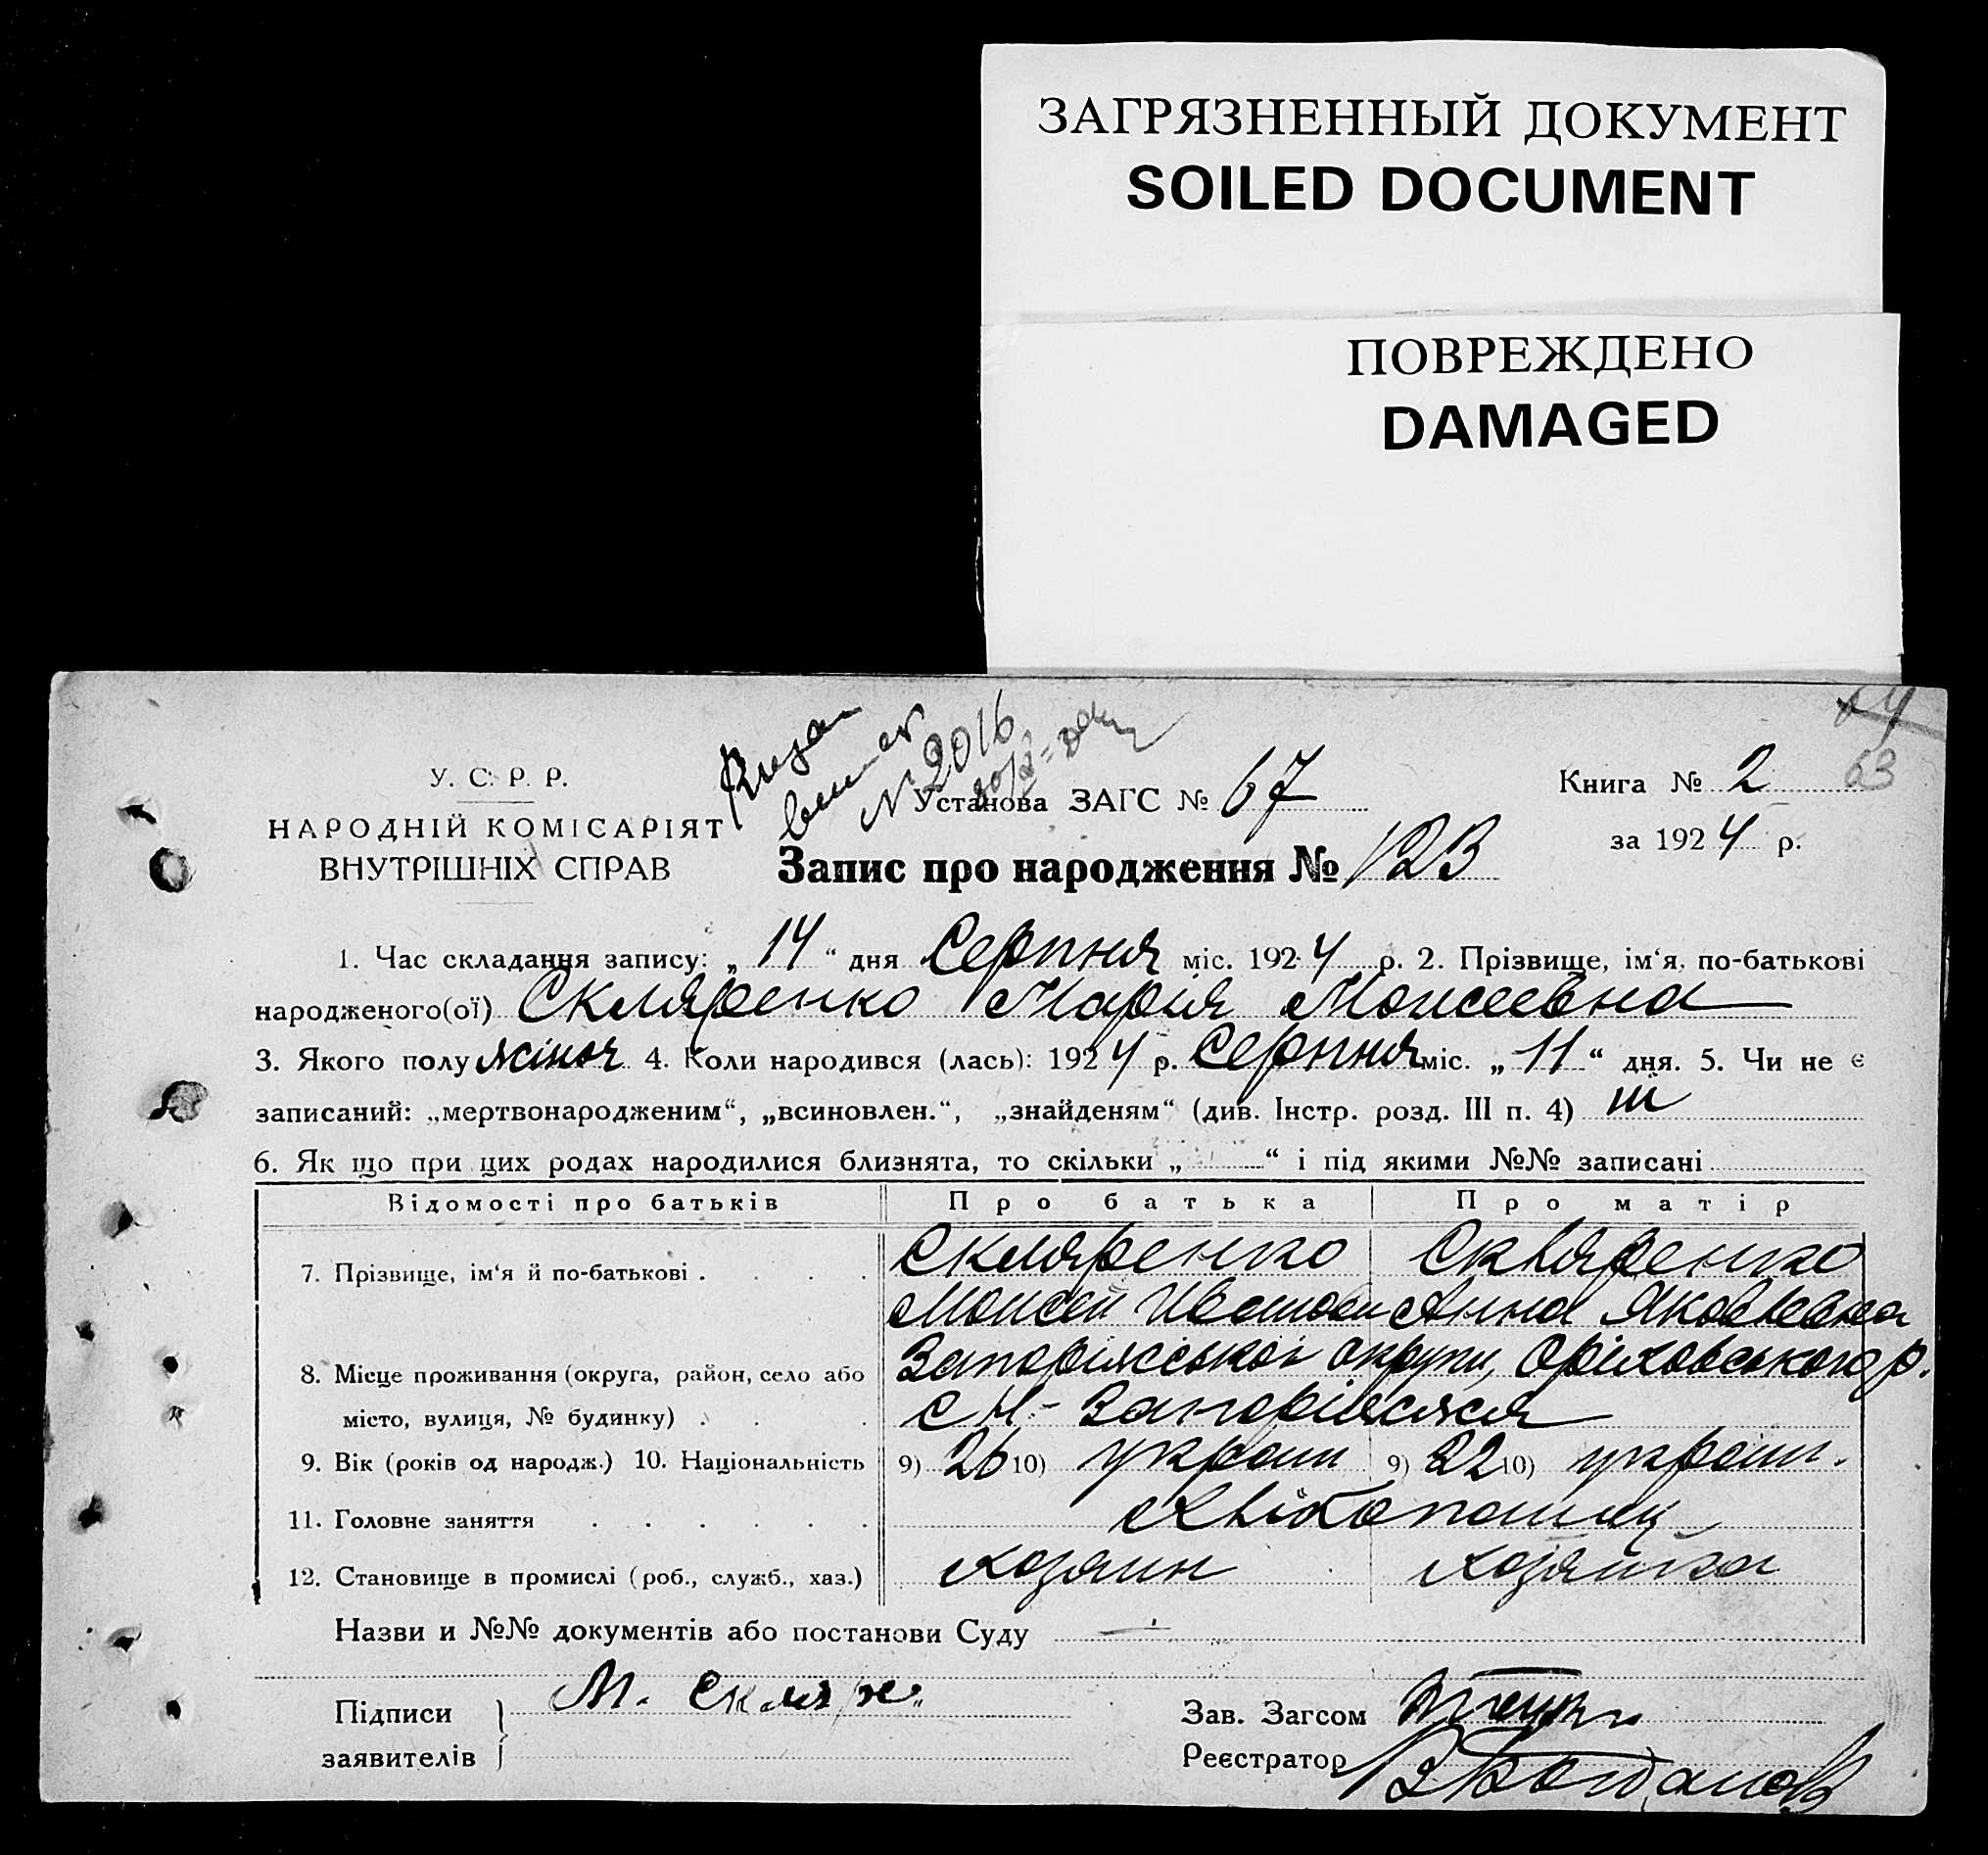 ЗАГРЯЗНЕННЫЙ ДОКУМЕНТ
SOILED DOCUMENT
ПОВРЕЖДЕНО
DAMAGED
64
63
№ 2016
У. С. Р. Р.
НАРОДНІЙ КОМІСАРІЯТ
ВНУТРІШНІХ СПРАВ
Установа ЗАГС № 67
Книга № 2
за 1924 р.
Запис про народження № 123
1. Час складання запису: „14“ дня Серпня міс. 1924 р. 2. Прізвище, ім‘я, по-батькові
народженого(ої) Скляренко Марія Моисеевна
3. Якого полу жіноч 4. Коли народився (лась): 1924 р. Серпня міс. „11“ дня. 5. Чи не є
записаний: „мертвонародженим“, „всиновлен.“, „знайденям“ (див. Інстр. розд. III п. 4) ні
6. Як що при цих родах народилися близнята, то скільки „ “ і під якими №№ записані
Відомості про батьків Про батька Про матір
7. Прізвище, ім‘я й по-батькові . . . . Скляренко Скляренко
Моисей Иванов Анна Яковлевна
8. Місце проживання (округа, район, село або Запоріжської округи, Оріховського р.
місто, вулиця, № будинку) . . . с Н-Запоріжжя
9. Вік (років од народж.) 10. Національність 9) 26 10) україн 9) 22 10) україн.
11. Головне заняття . . . . . . Хлібопашец
12. Становище в промислі (роб., служб., хаз.) хозяин хозяйка
Назви и №№ документів або постанови Суду —
Підписи М. Скляре
заявителів
Зав. Загсом
Реєстратор Богданов